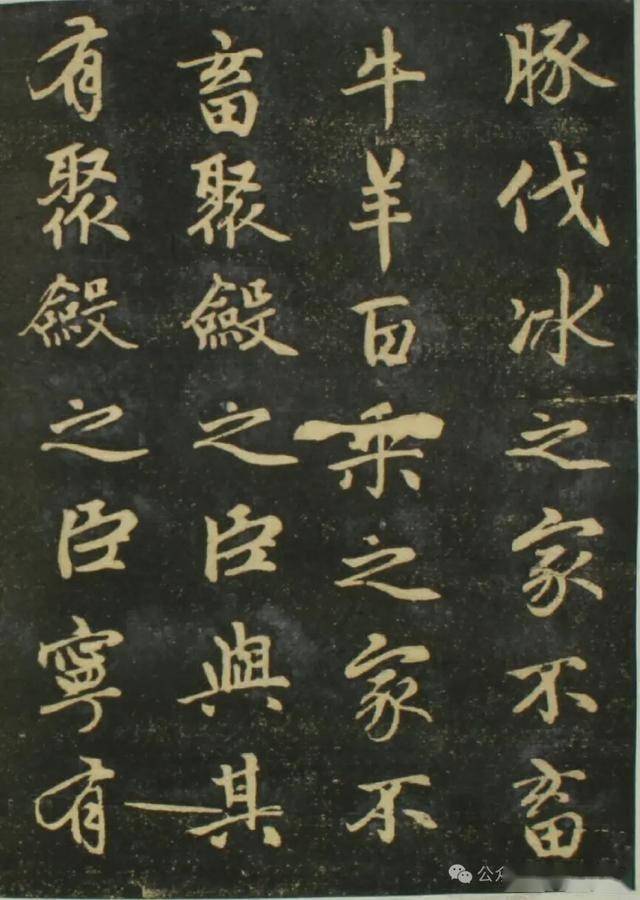 豚伐冰之家不畜
牛羊百乘之家不
畜聚斂之臣與其
有聚斂之臣寧有
公众